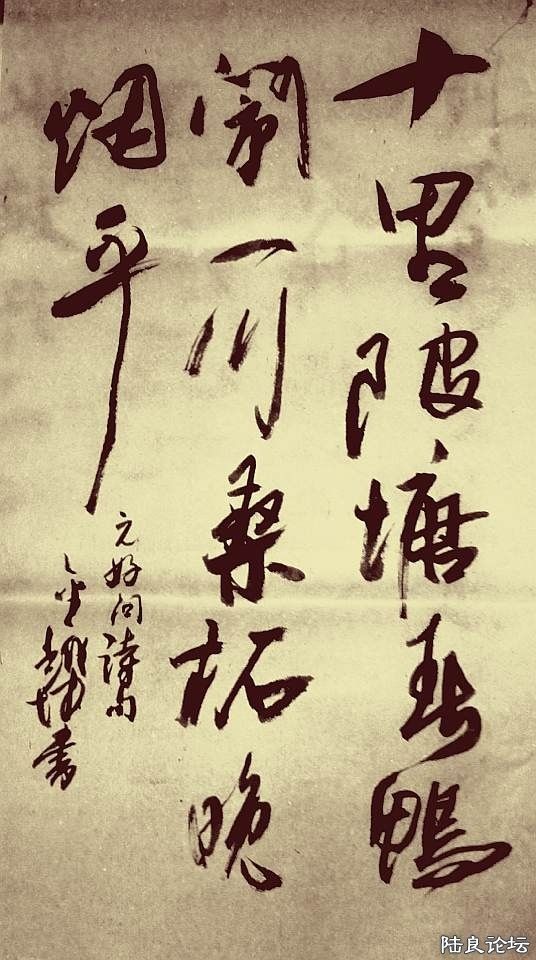 十里陂塘春鸭
闹一川桑柘晚
烟平
元好问诗句
书
陆良论坛